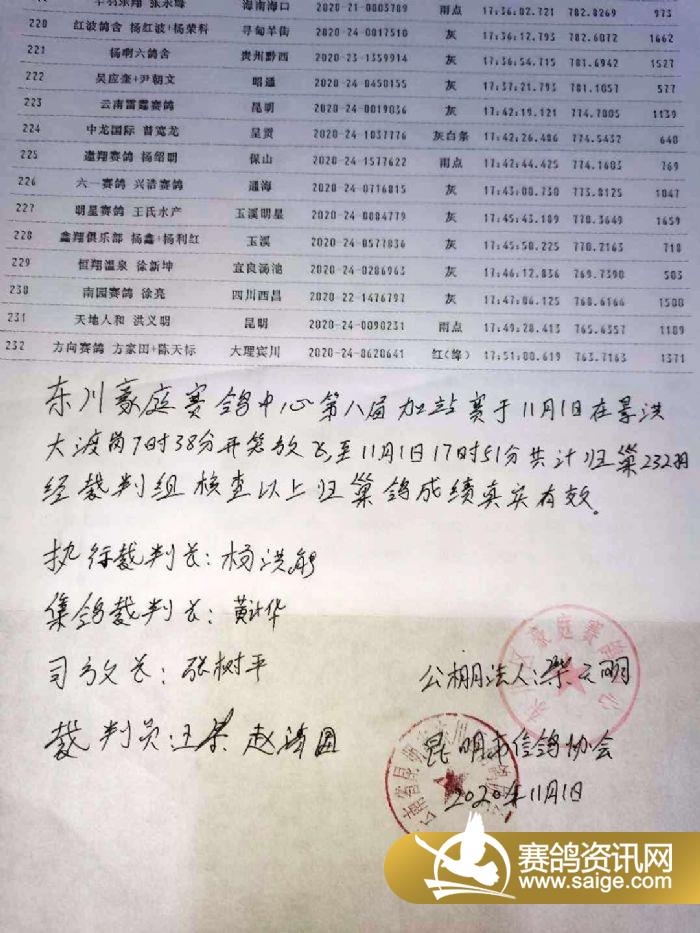 海南海口 2020-21-0003789 雨点 17:36:02.721 782.8269 973
220 红波鸽舍 杨红波+杨荣科 寻甸羊街 2020-24-0017510 灰 17:36:12.793 782.6072 1662
221 杨啊六鸽舍 贵州黔西 2020-23-1359914 灰 17:36:54.715 781.6942 1527
222 吴应奎+尹朝文 昭通 2020-24-0450155 灰 17:37:21.793 781.1057 577
223 云南雷霆赛鸽 昆明 2020-24-0019036 灰 17:42:19.121 774.7005 1139
224 中龙国际 普宽龙 呈贡 2020-24-1037776 灰白条 17:42:26.486 774.5432 640
225 遨翔赛鸽 杨绍明 保山 2020-24-1577622 雨点 17:42:44.425 774.1603 769
226 六一赛鸽 兴浩赛鸽 通海 2020-24-0716815 灰 17:43:00.730 773.8125 1047
227 明星赛鸽 王氏水产 玉溪明星 2020-24-0084779 灰 17:45:43.189 770.3649 1659
228 鑫翔俱乐部 杨鑫+杨利红 玉溪 2020-24-0577036 灰 17:45:50.225 770.2163 718
229 恒翔温泉 徐新坤 宜良汤池 2020-24-0286963 灰 17:46:12.836 769.7390 503
230 南园赛鸽 徐亮 四川西昌 2020-22-1476797 灰 17:47:06.125 768.6166 1500
231 天地人和 洪义明 昆明 2020-24-0090231 雨点 17:49:28.413 765.6357 1109
232 方向赛鸽 方家田+陈天标 大理宾川 2020-24-0620641 红(绛) 17:51:00.619 763.7163 1371
东川豪庭赛鸽中心第八届加站赛于11月1日在景洪
大渡岗7时38分开笼放飞,至11月1日17时51分共计归巢232羽
经裁判组核查以上归巢鸽成绩真实有效。
执行裁判长:杨洪能
集鸽裁判长:黄计华
司放长:张树平 公棚法人:梁云明
裁判员:汪 赵 昆明市信鸽协会
2020年11月1日
赛鸽资讯网
www.saige.com